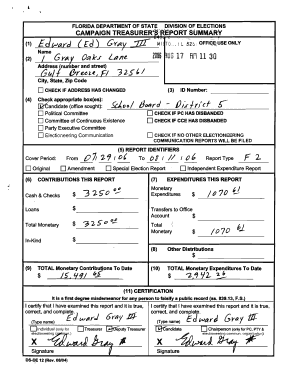 FLORIDA DEPARTMENT OF STATE DIVISION OF ELECTIONS
CAMPAIGN TREASURER'S REPORT SUMMARY
(1) Edward (Ed) Gray III
OFFICE USE ONLY
Name
(2) 1 Gray Oaks Lane
2006 AUG 17 AM 11 30
Address (number and street)
Gulf Breeze, Fl 32561
City, State, Zip Code
CHECK IF ADDRESS HAS CHANGED (3) ID Number:
(4) Check appropriate box(es):
Candidate (office sought): School Board - District 5
Political Committee CHECK IF PC HAS DISBANDED
Committee of Continuous Existence CHECK IF CCE HAS DISBANDED
Party Executive Committee
Electioneering Communication CHECK IF NO OTHER ELECTIONEERING
COMMUNICATION REPORTS WILL BE FILED
(5) REPORT IDENTIFIERS
Cover Period: From 07/29/06 To 08/11/06 Report Type F2
Original Amendment Special Election Report Independent Expenditure Report
(6) CONTRIBUTIONS THIS REPORT
(7) EXPENDITURES THIS REPORT
Cash & Checks $ 3250.00
Monetary
Expenditures $ 1070.61
Loans $
Transfers to Office
Account $
Total Monetary $ 3250.00
Total
Monetary $ 1070.61
In-Kind $
(8) Other Distributions
$
(9) TOTAL Monetary Contributions To Date
$ 15,491.00
(10) TOTAL Monetary Expenditures To Date
$ 2,942.22
(11) CERTIFICATION
It is a first degree misdemeanor for any person to falsify a public record (ss. 839.13, F.S.)
I certify that I have examined this report and it is true,
correct, and complete.
(Type name) Edward Gray III
Treasurer Deputy Treasurer
X Edward Gray III
Signature
I certify that I have examined this report and it is true,
correct, and complete.
(Type name) Edward Gray III
Candidate
X Edward Gray III
Signature
DS-DE 12 (Rev. 08/04)